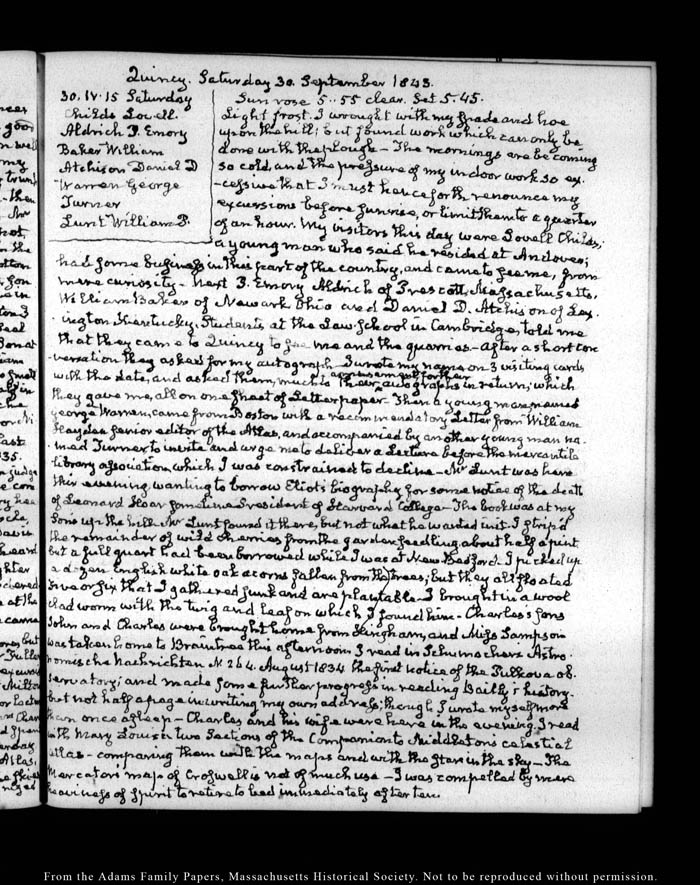 Quincy. Saturday 30. September 1843.
30. IV. 15 Saturday
Childs Lovell.
Aldrich P. Emory
Baker William
Atchison Daniel D
Warren George
Turner
Lunt William P.
Sun rose 5.-55 clear. Set 5.45.
Light frost. I wrought with my spade and hoe
upon the hill; but found work which can only be
done with the plough - The mornings are becoming
so cold, and the pressure of my indoor work so ex-
-cessive that I must henceforth renounce my
excursions before sunrise, or limit them to a quarter
of an hour. My visitors this day were Lovell Childs,
a young man who said he resided at Andover;
had some business in this part of the country, and came to see me, from
mere curiosity - Next P. Emory Aldrich of Prescott, Massachusetts,
William Baker of Newark Ohio and Daniel D. Atchison of Lex-
-ington Kentucky, Students at the Law School in Cambridge, told me
that they came to Quincy to see me and the quarries - After a short con
versation they asked for my autograph - I wrote my name on 3 visiting cards
with the date, and asked them, much to their autographs in return; which
they gave me, all on one sheet of Letter paper - Then a young man named
George Warren, came from Boston with a recommendatory Letter from William
Hayden senior editor of the Atlas, and accompanied by another young man na-
-med Turner to invite and urge me to deliver a Lecture before the mercantile
library association, which I was constrained to decline - Mr Lunt was here
this evening wanting to borrow Eliot's biography for some notice of the death
of Leonard Hoar sometime President of Harvard College - The book was at my
Son's up the hill. Mr Lunt found it there, but not what he wanted in it. I strip'd
the remainder of wild cherries from the garden seedling about half a pint
but a full quart had been borrowed while I was at New Bedford. I picked up
a dozen English white oak acorns fallen from the trees; but they all floated
Five or six that I gathered sunk and are plantable. I brought in a wool
clad worm with the twig and leaf on which I found him - Charles's sons
John and Charles were brought home from Hingham, and Miss Sampson
was taken home to Braintree this afternoon I read in Schumacher's Astro-
nomische Nachrichten N. 264. August 1834 the first notice of the Pulkova ob-
servatory; and made some further progress in reading Bailly's history.
but not half a page in writing my own address; though I wrote myself more
than once asleep - Charles and his wife were here in the evening. I read
with Mary Louisa two Sections of the Companion to Middleton's celestial
atlas - comparing them with the maps and with the stars in the sky - The
Mercator's map of Croswell is not of much use - I was compelled by mere
heaviness of spirit to retire to bed immediately after ten.
From the Adams Family Papers, Massachusetts Historical Society. Not to be reproduced without permission.